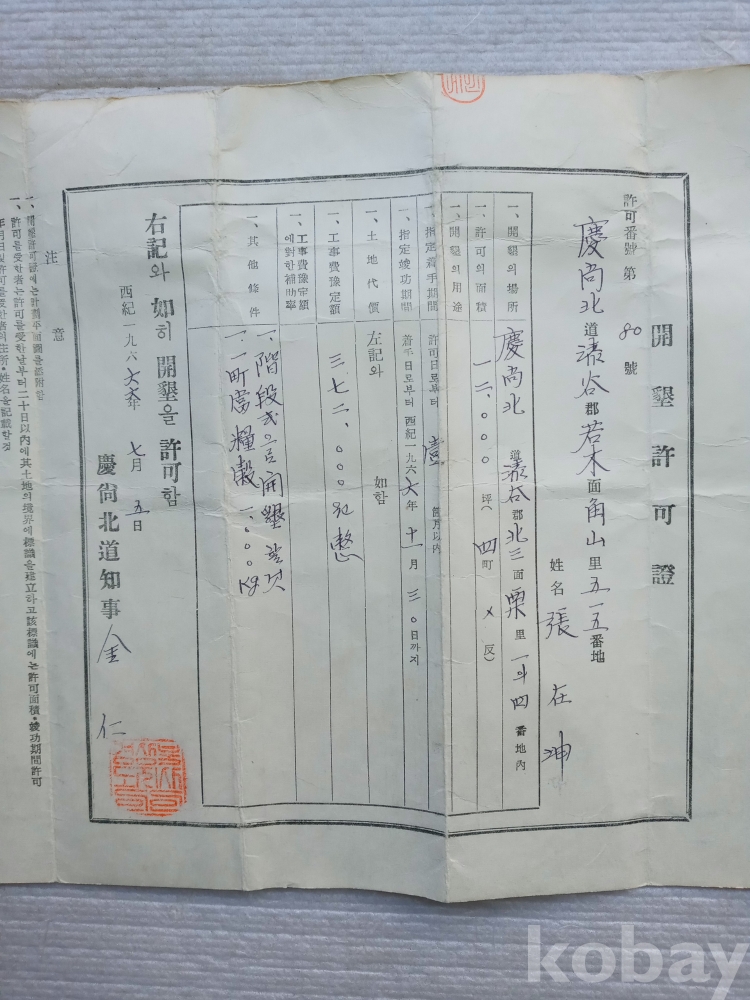 開墾許可證
許可番號第 80 號
慶尚北道漆谷郡若木面角山里五一五番地
姓名 張在坤
一、開墾의場所 慶尚北道漆谷郡北三面栗里 1의四番地內
一、許可의面積 一二、〇〇〇坪(四町 ×反)
一、開墾의用途
一、指定着手期間 許可日로부터 壹 個月以內
一、指定竣功期間 着手日로부터 西紀一九六六年十一月三〇日까지
一、土地代價 左記와 如함
一、工事費豫定額 三七二、〇〇〇원整
一、工事費豫定額에對한補助率
一、其他條件 一、階段式으로開墾할것
一、一町當糧穀一、〇〇〇Kg
右記와 如히 開墾을 許可함
西紀一九六六年 七月 五日
慶尙北道知事 金仁
注意
一、開墾許可證에는計劃平面圖를添附함
一、許可를受한者는許可를受한날부터二十日以內에其土地의境界에標識을建立하고該標識에는許可面積・竣功期間許可
年月日및許可를受한者의住所・姓名을記載할것
kobay